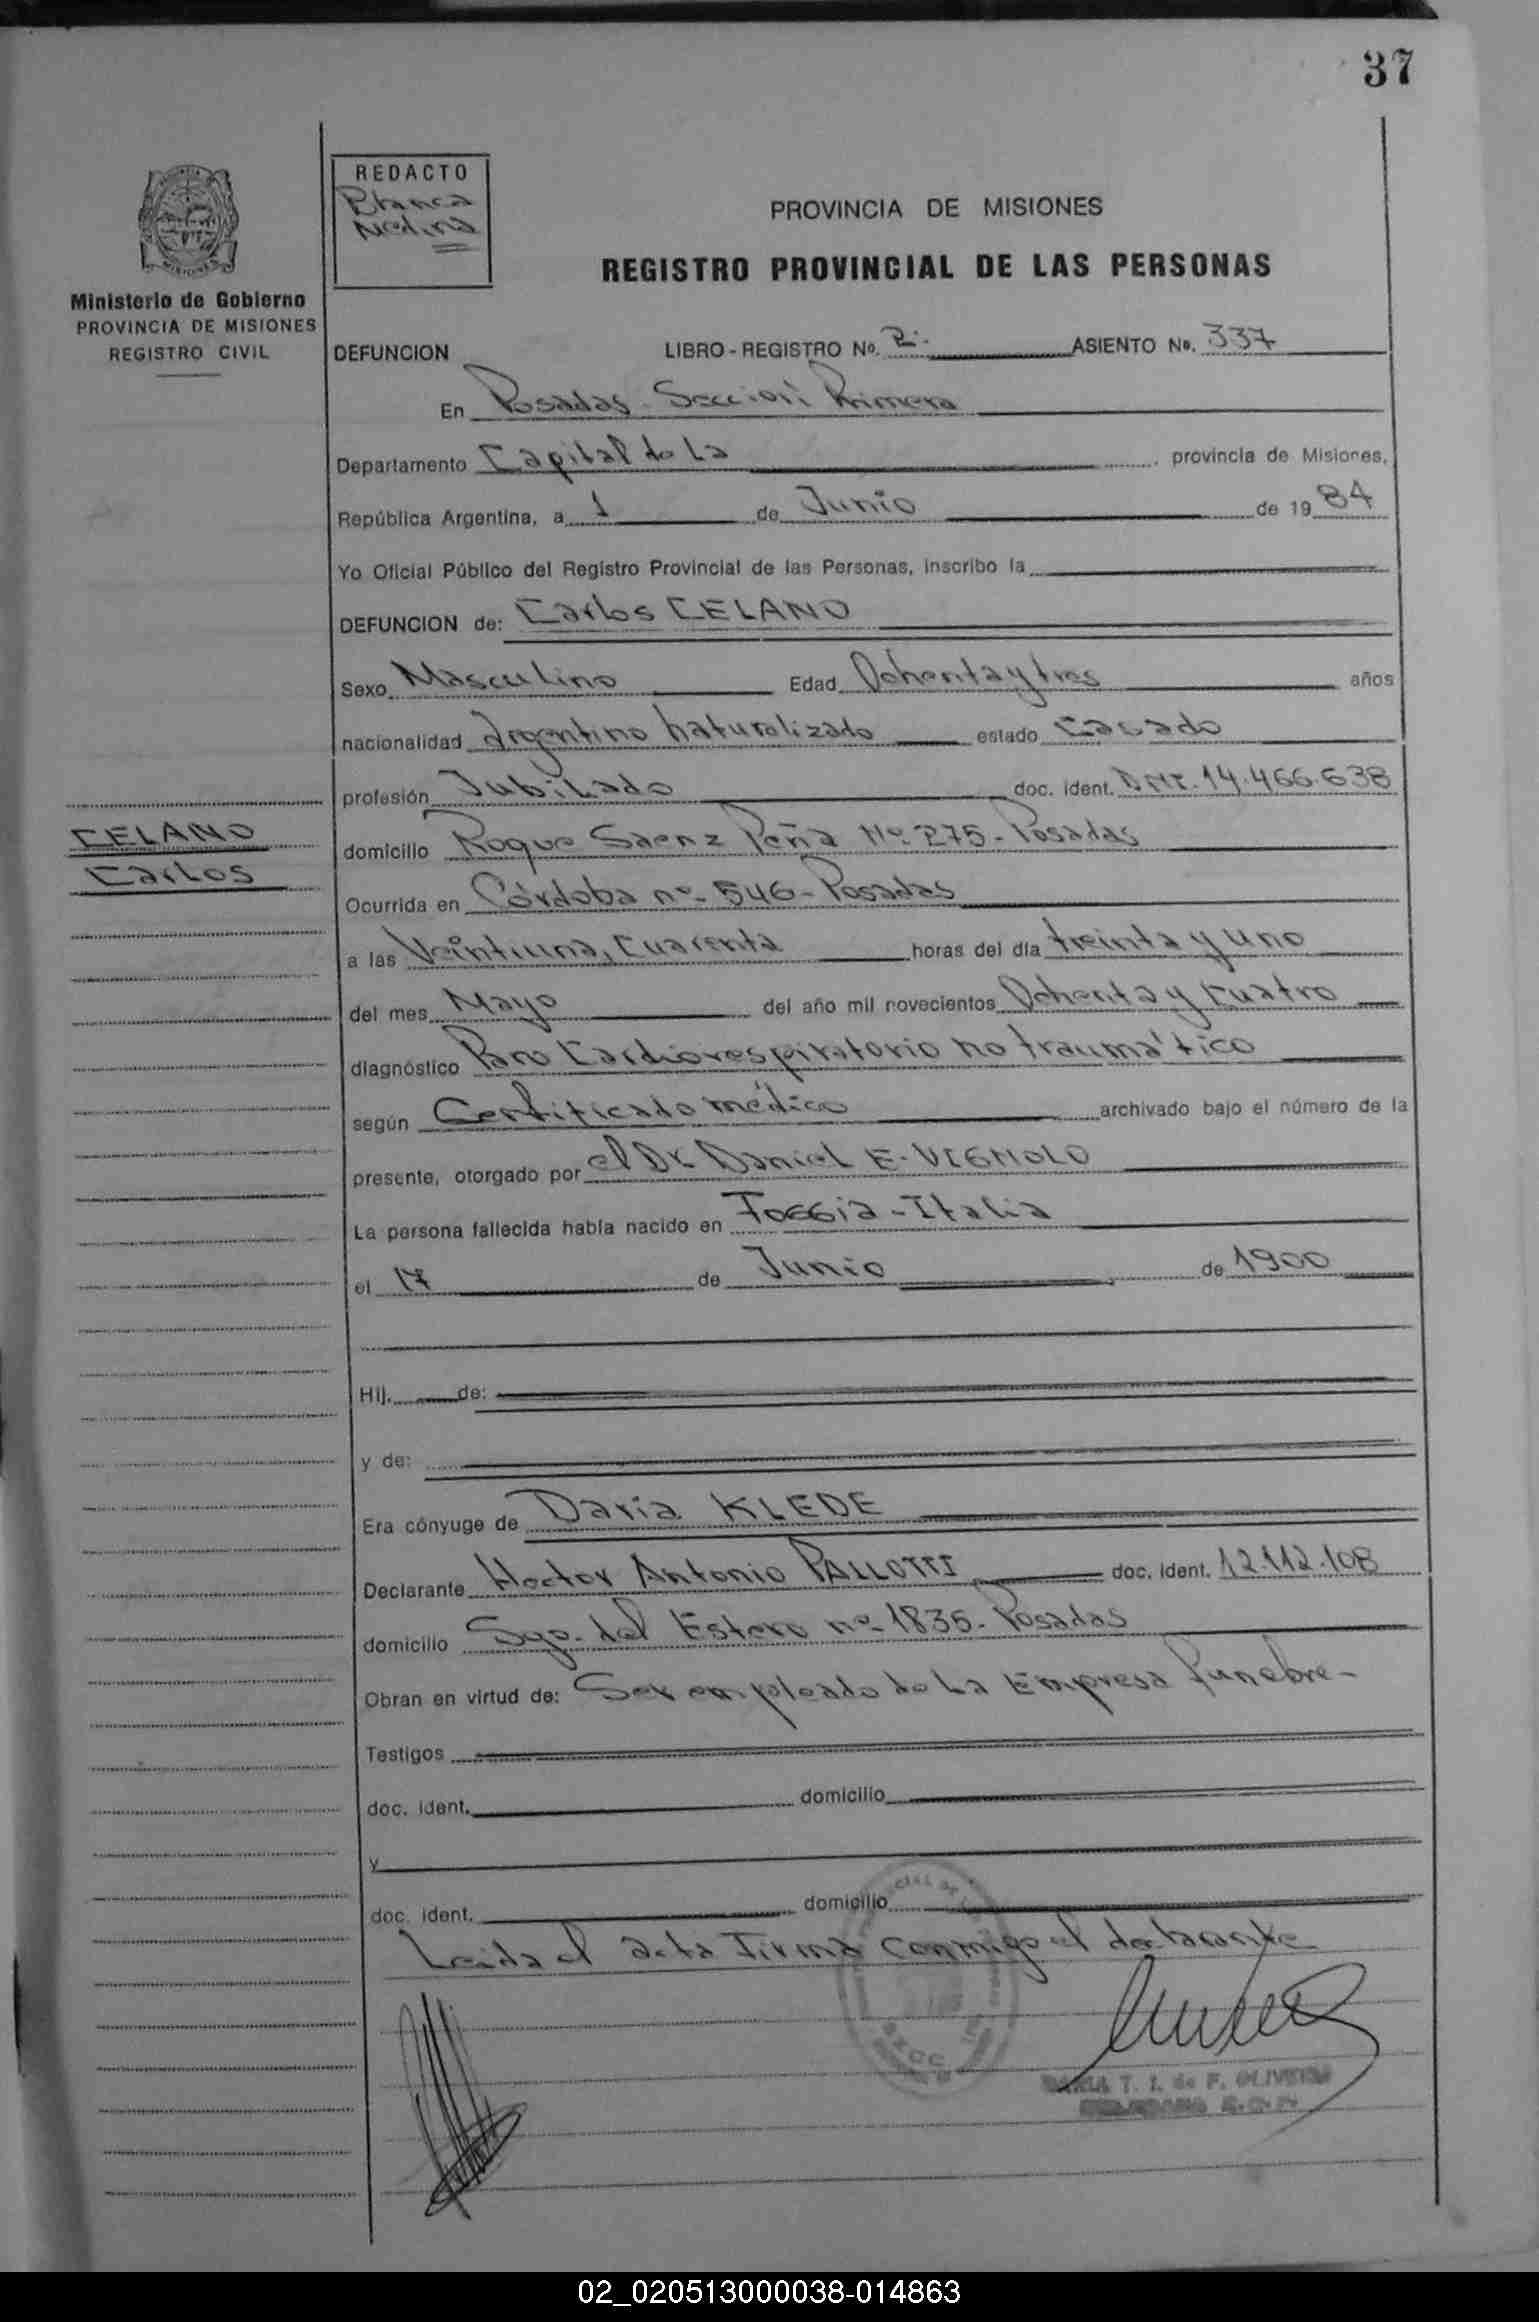 37
REDACTO
Blanca
Medina
PROVINCIA DE MISIONES
REGISTRO PROVINCIAL DE LAS PERSONAS
MISIONES
Ministerio de Gobierno
PROVINCIA DE MISIONES
REGISTRO CIVIL
DEFUNCION LIBRO-REGISTRO No. 2. ASIENTO No. 337
En Posadas. Sección Primera
Departamento Capital de La provincia de Misiones,
República Argentina, a 1 de Junio de 1984
Yo Oficial Público del Registro Provincial de las Personas, inscribo la
DEFUNCION de: Carlos CELANO
Sexo Masculino Edad Ochenta y tres años
nacionalidad Argentino naturalizado estado Casado
profesión Jubilado doc. ident. DNI. 14.466.638
CELANO
Carlos
domicilio Roque Saenz Peña Nº 275 - Posadas
Ocurrida en Córdoba nº 546 - Posadas
a las Veintiuna, Cuarenta horas del día treinta y uno
del mes Mayo del año mil novecientos Ochenta y cuatro
diagnóstico Paro Cardiorespiratorio no traumático
según Certificado médico archivado bajo el número de la
presente, otorgado por el Dr. Daniel E. VIGNOLO
La persona fallecida había nacido en Foggia - Italia
el 17 de Junio de 1900
Hij. de:
y de:
Era cónyuge de Daria KLEDE
Declarante Hector Antonio PALLOTTI doc. ident. 12.112.108
domicilio Sgo. del Estero nº 1835. Posadas
Obran en virtud de: Ser empleado de La Empresa funebre -
Testigos
doc. ident. domicilio
y
doc. ident. domicilio
Leida el acta Firma conmigo el declarante
T. I. de F. OLIVEIRA
02_020513000038-014863